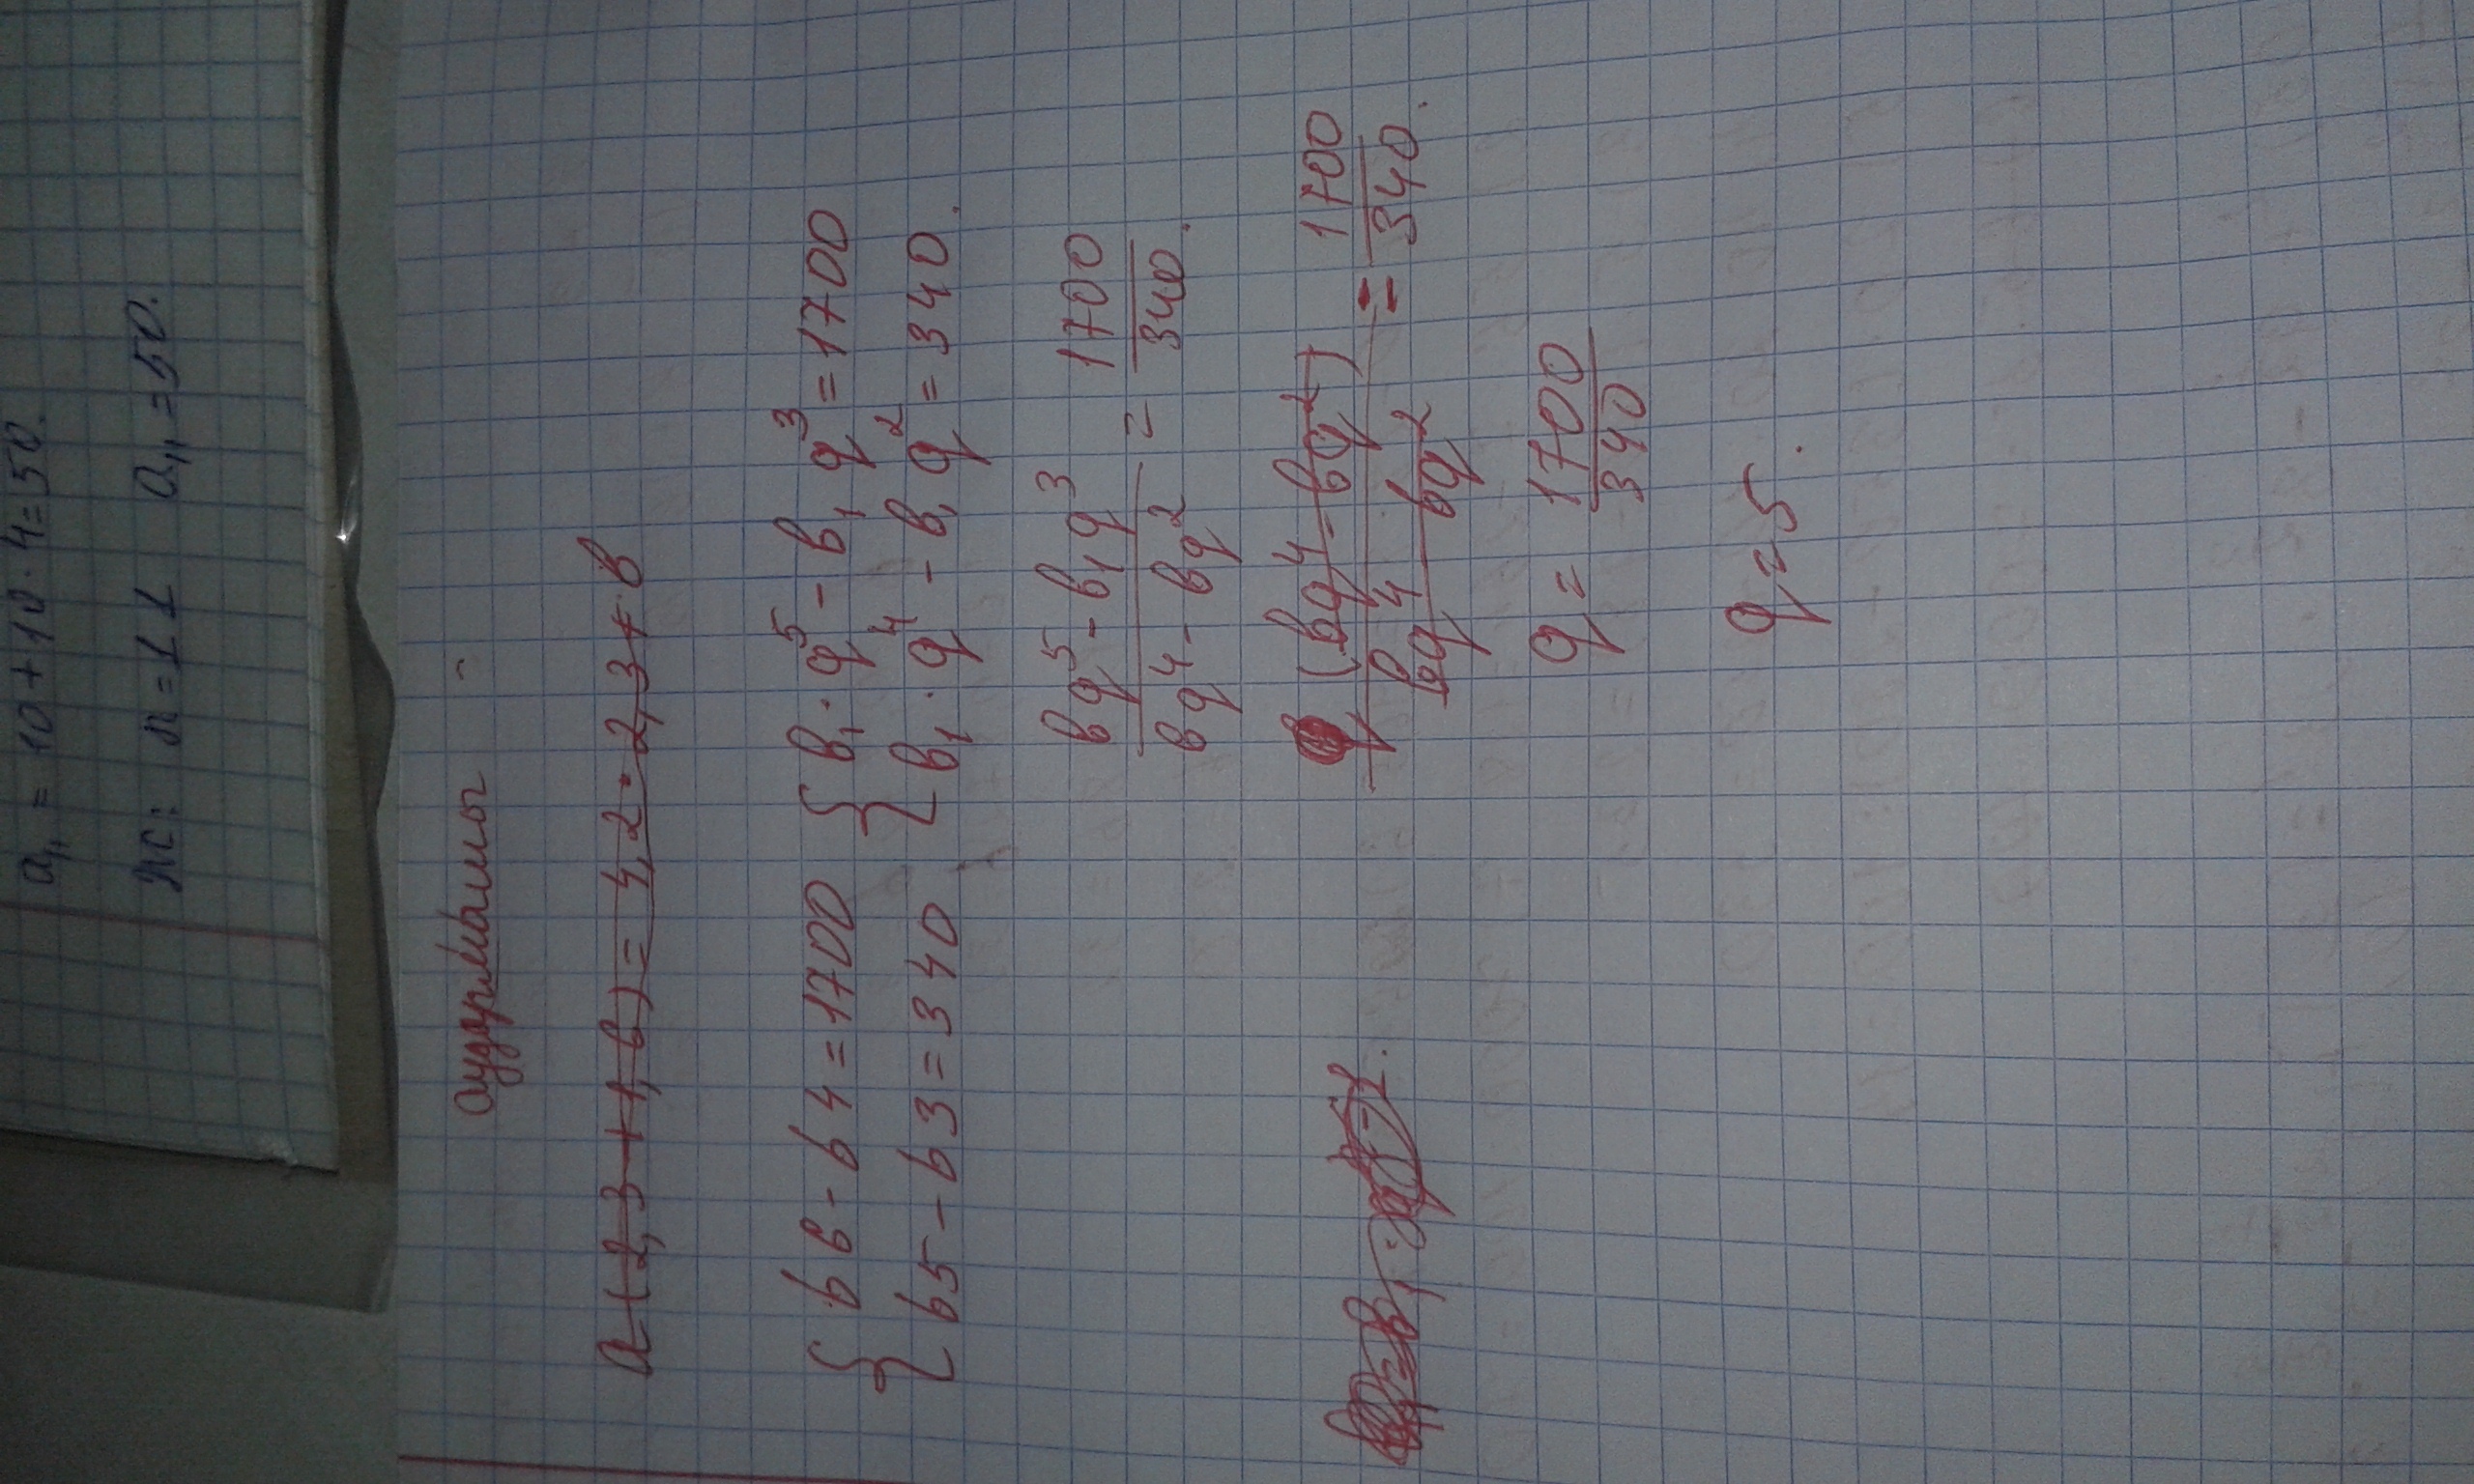 a₁₁ = 10 + 10 · 4 = 50.
ЖС: n = 11 a₁₁ = 50.
Аудармашы
a (2,3 + 1,6) = 4,2 · 2,3 + b
{ b6 - b4 = 1700 { b₁ · q⁵ - b₁q³ = 1700
b5 - b3 = 340 b₁ · q⁴ - b₁q² = 340.
bq⁵ - b₁q³ / bq⁴ - bq² = 1700 / 340.
q (bq⁴ - bq²) / bq⁴ bq² = 1700 / 340.
q = 1700 / 340
q = 5.